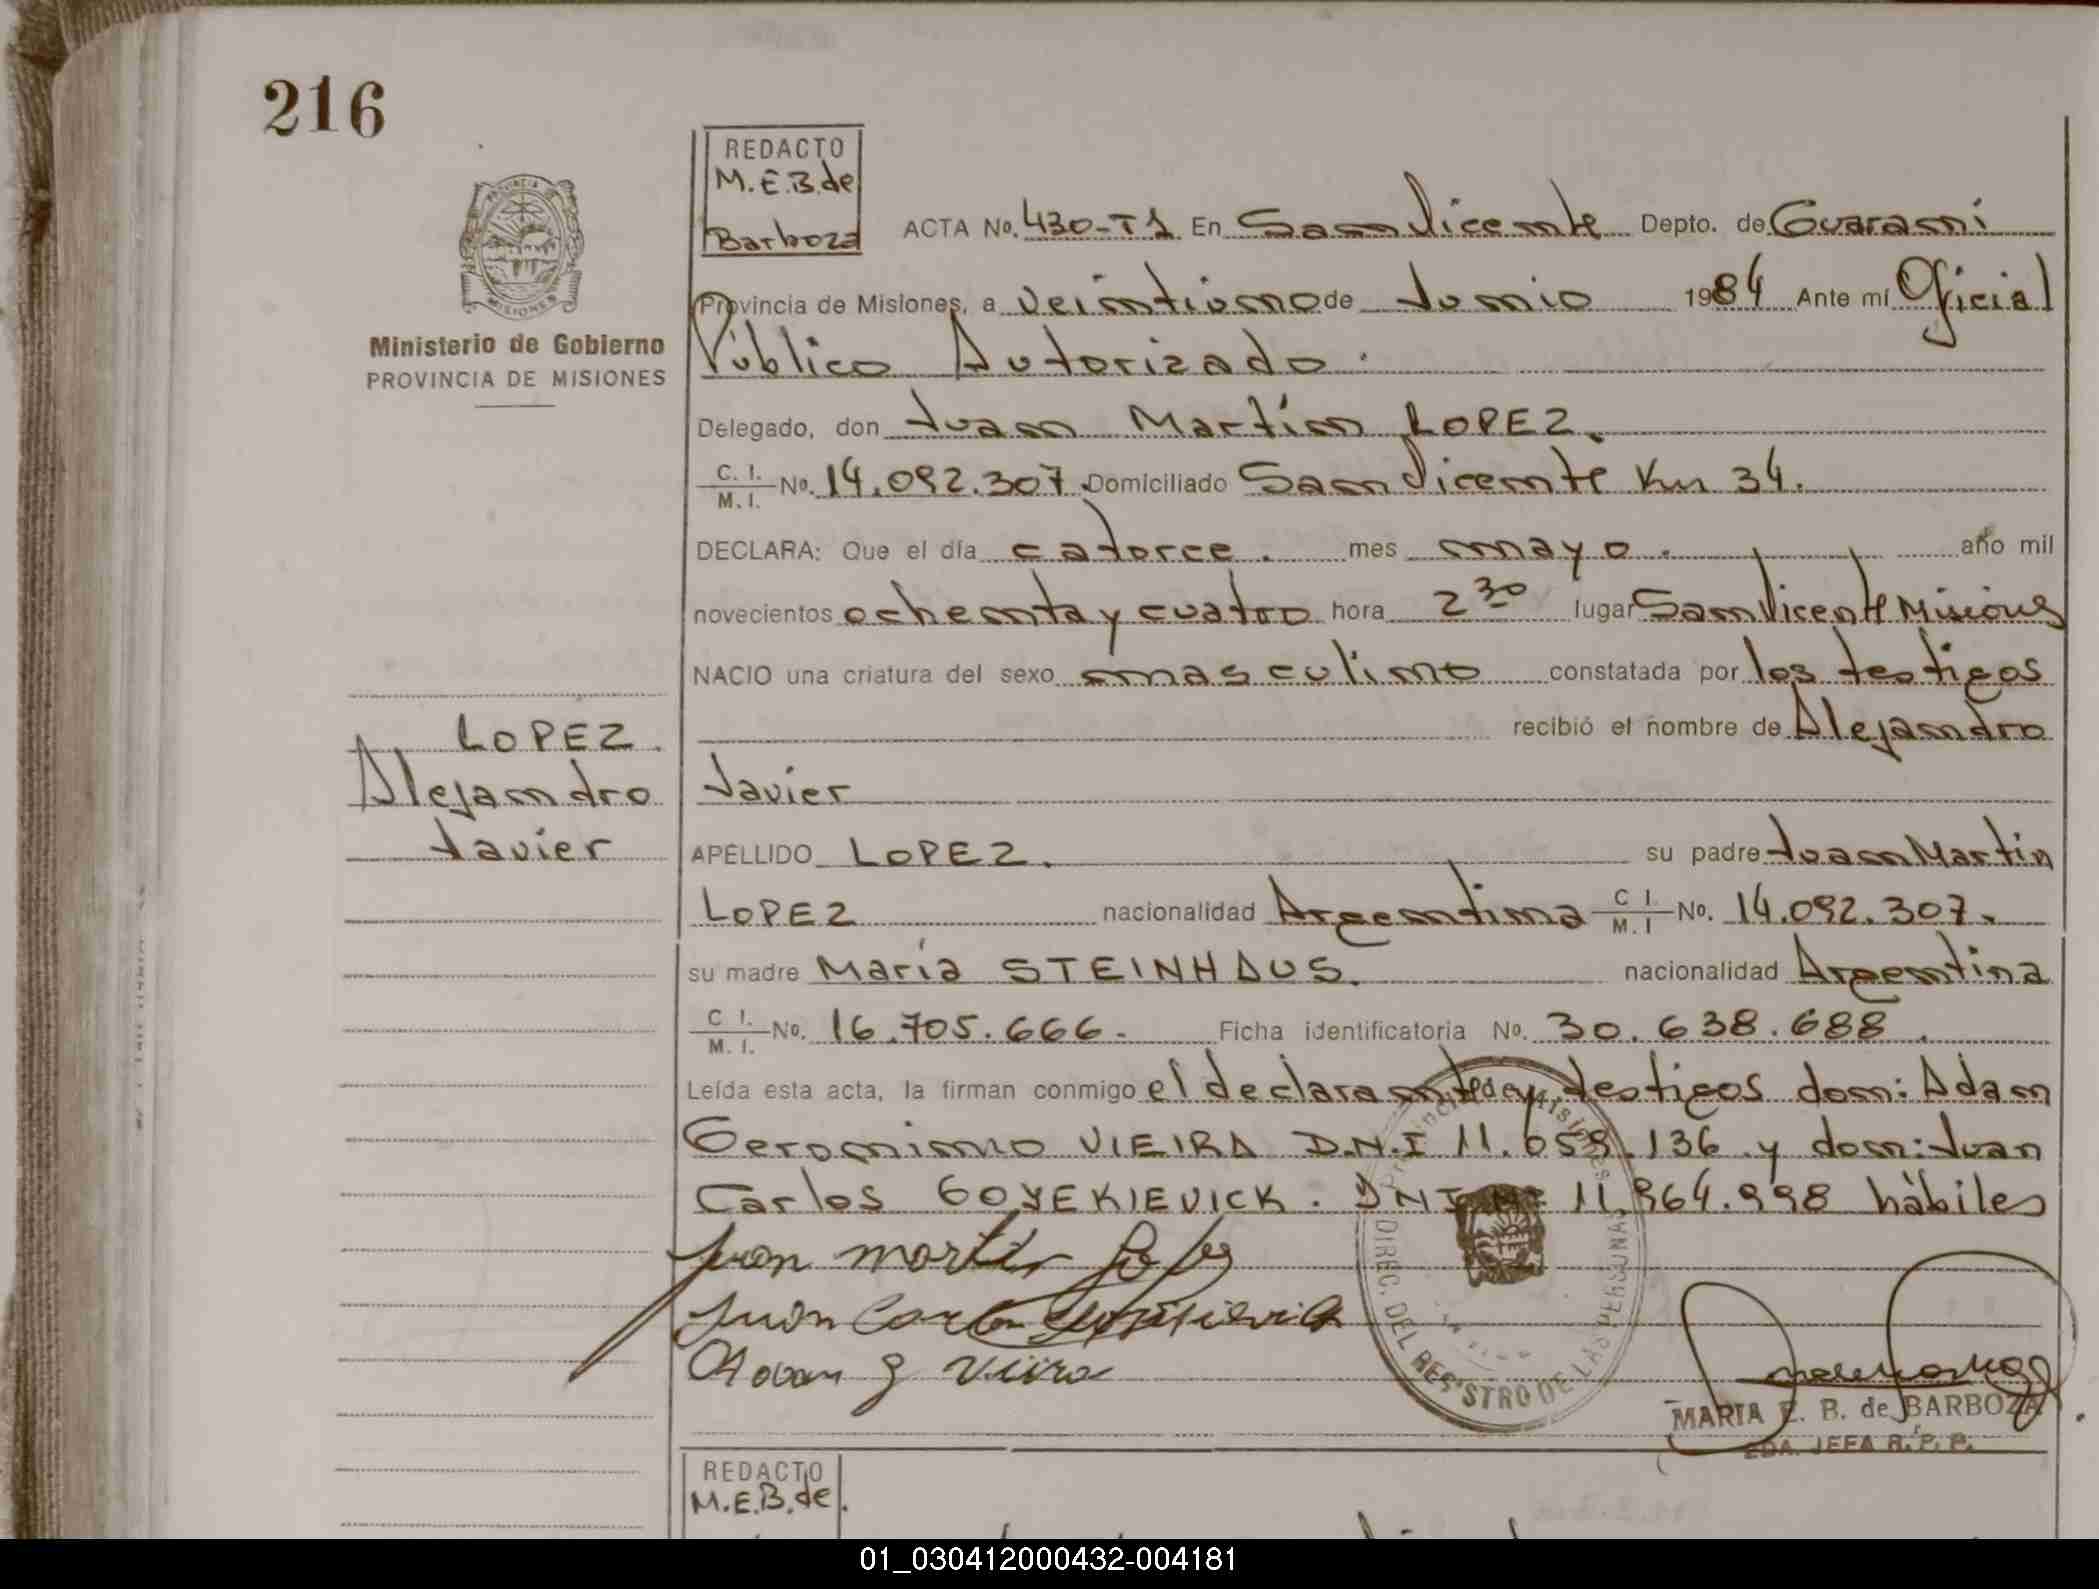 216
PROVINCIA DE
MISIONES
Ministerio de Gobierno
PROVINCIA DE MISIONES
LOPEZ.
Alejandro
Javier
REDACTO
M.E.B.de
Barboza
ACTA No. 430-T1 En San Vicente Depto. de Guaraní
Provincia de Misiones, a veintiuno de Junio 1984 Ante mí Oficial
Público Autorizado.
Delegado, don Juan Martín LOPEZ.
C. I. / M. I. No. 14.092.307. Domiciliado San Vicente Km 34.
DECLARA: Que el día catorce. mes mayo. año mil
novecientos ochenta y cuatro hora 2 30 lugar San Vicente Misiones
NACIO una criatura del sexo masculino constatada por los testigos
recibió el nombre de Alejandro
Javier
APELLIDO LOPEZ. su padre Juan Martin
LOPEZ nacionalidad Argentina C I. / M. I No. 14.092.307.
su madre María STEINHAUS. nacionalidad Argentina
C I. / M. I. No. 16.705.666. Ficha identificatoria No. 30.638.688.
Leída esta acta, la firman conmigo el declarante y testigos don: Adam
Geronimo VIEIRA D.N.I 11.659.136 y don: Juan
Carlos GOYEKIEVICK. DNI Nº 11.964.998 hàbiles
Juan Martin Lopez
Juan Carlos
Adam G Vieira
Provincia de Misiones
DIREC. DEL REGISTRO DE LAS PERSONAS
MARIA E. B. de BARBOZA
2DA. JEFA R. P. P.
REDACTO
M.E.B.de.
01_030412000432-004181